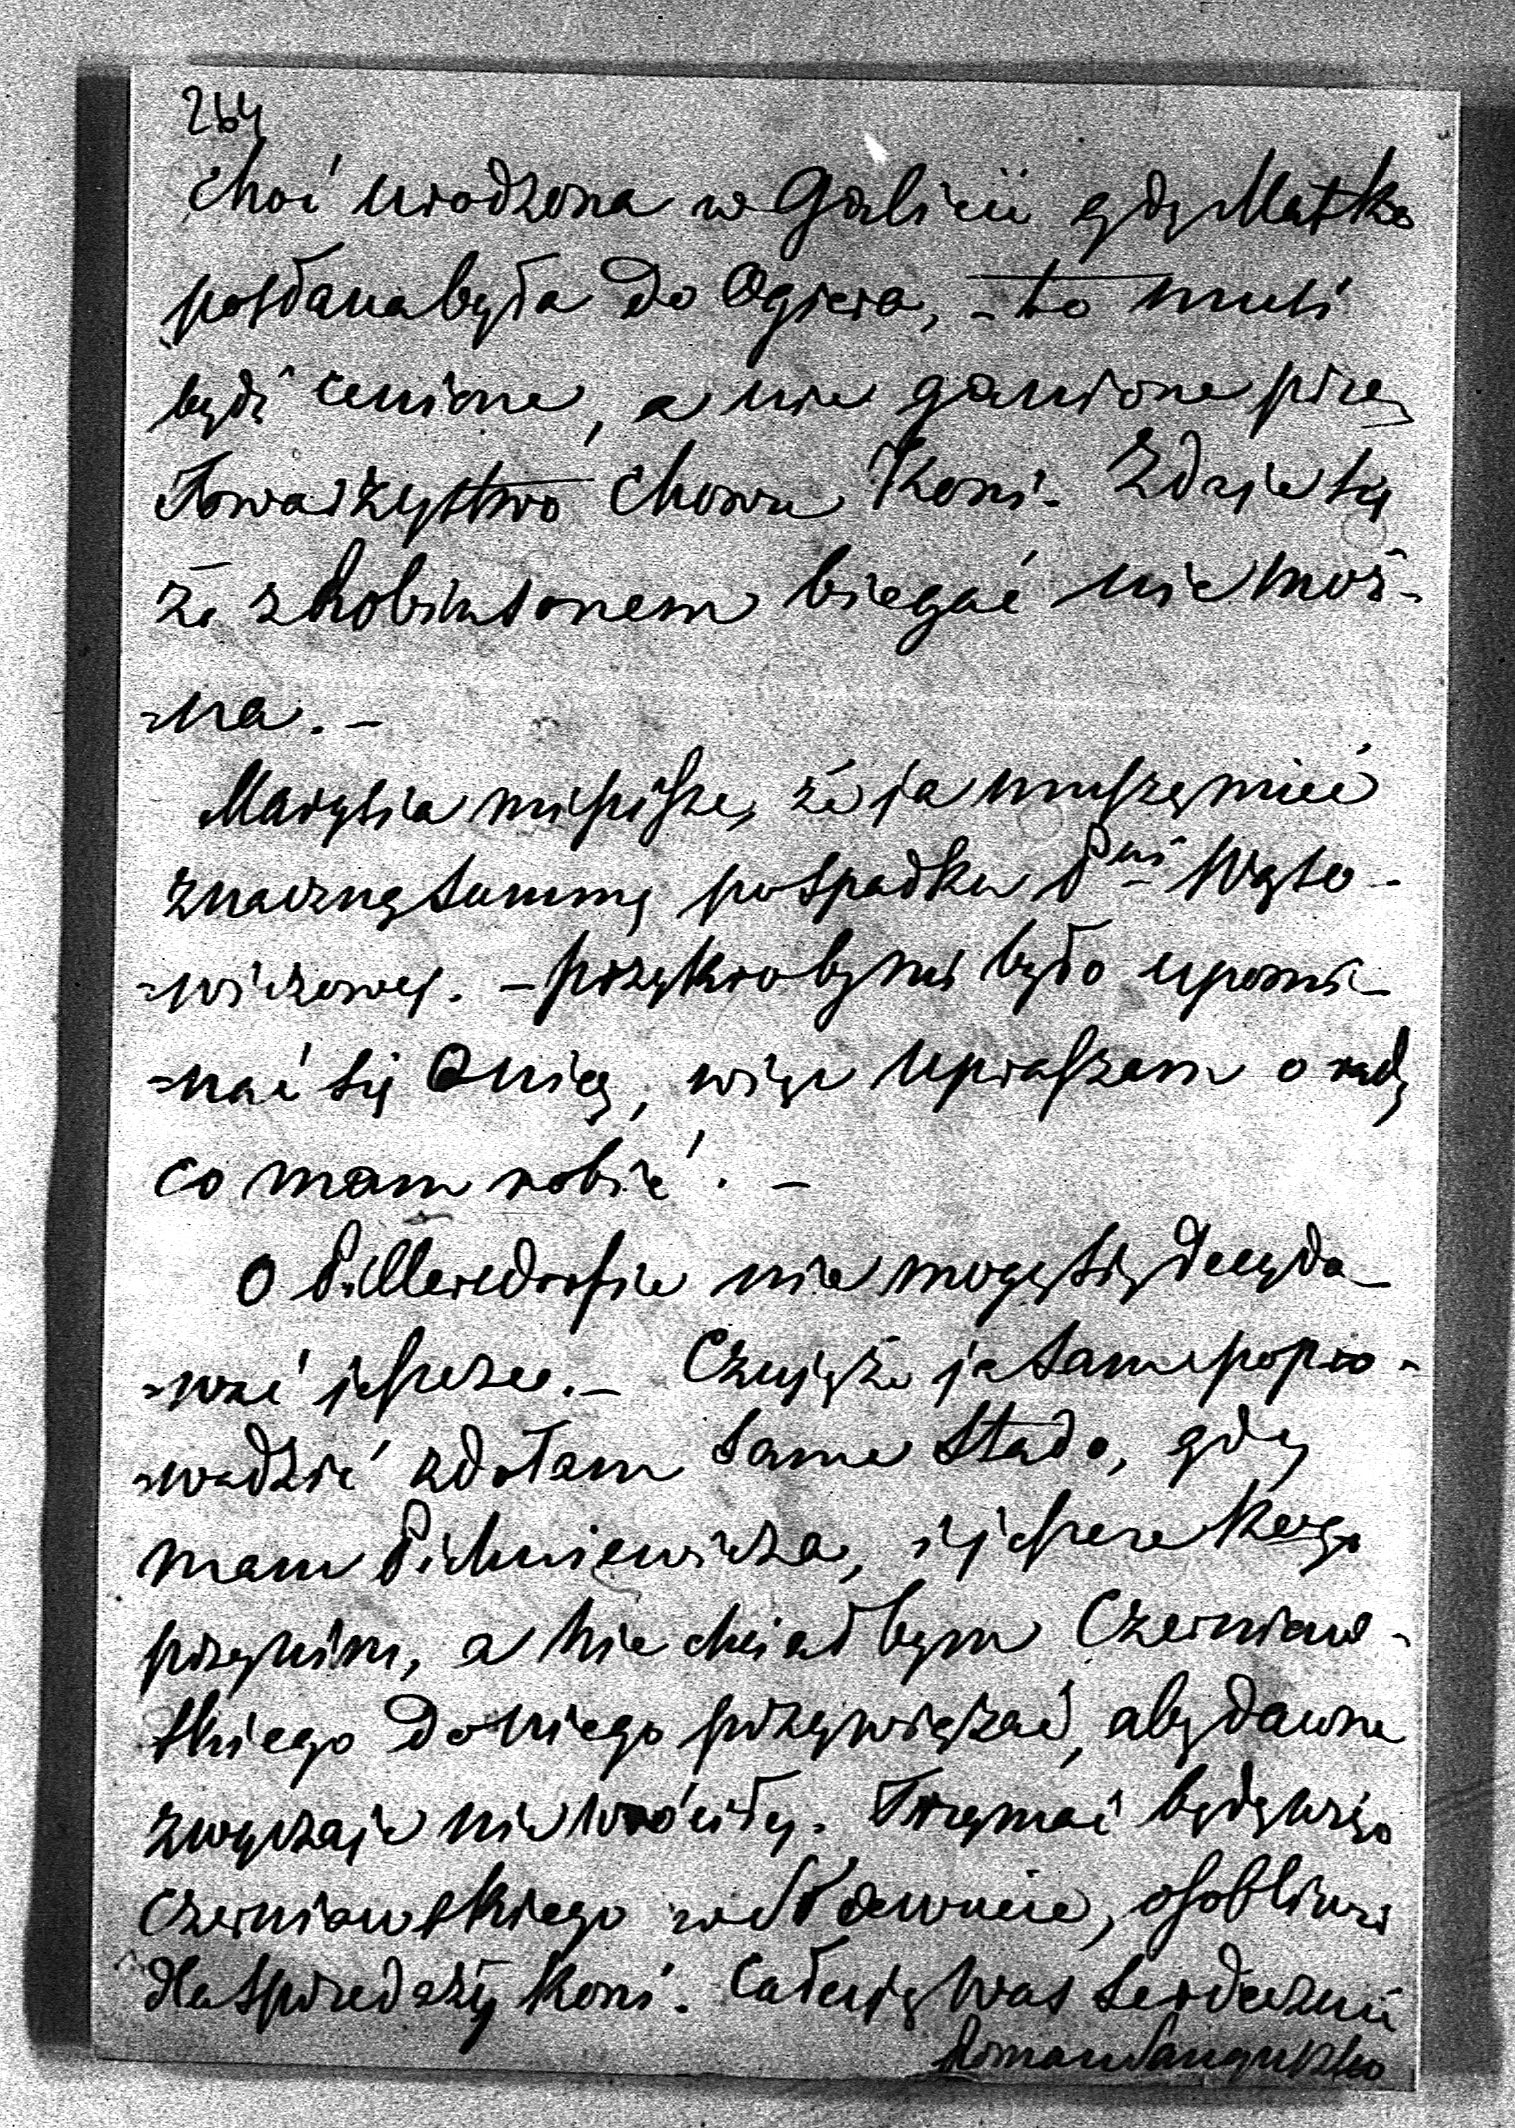 264
choć urodzona w Galicii gdy Matka
posłana była do Ogiera, - to musi
bydź cenione, a nie ganione przez
Towarzystwo Chowu Koni. Zdaje się
że z Robinsonem biegać nie moż-
=na. -
Marysia mi pisze, że ja muszę mieć
znaczną summę po spadku Pni Węso-
=wiczowej. - przykro by mi było upomi-
=nać się o nią, więc upraszam o radę
co mam robić. -
O Pillersdorfie nie mogę się decydo-
=wać jeszcze. - Czuję że ja sam popro-
=wadzić zdołam same Stado, gdy
mam Pichniewicza, i jeszcze kogo
przy nim, a nie chciałbym Czerniaw-
skiego do niego przywiązać, aby dawne
zwyczaje nie wróciły. Trzymać będę więc
Czerniawskiego w Sławucie, osobliwie
dla sprzedaży koni. Całuję Was serdecznie
Roman Sanguszko